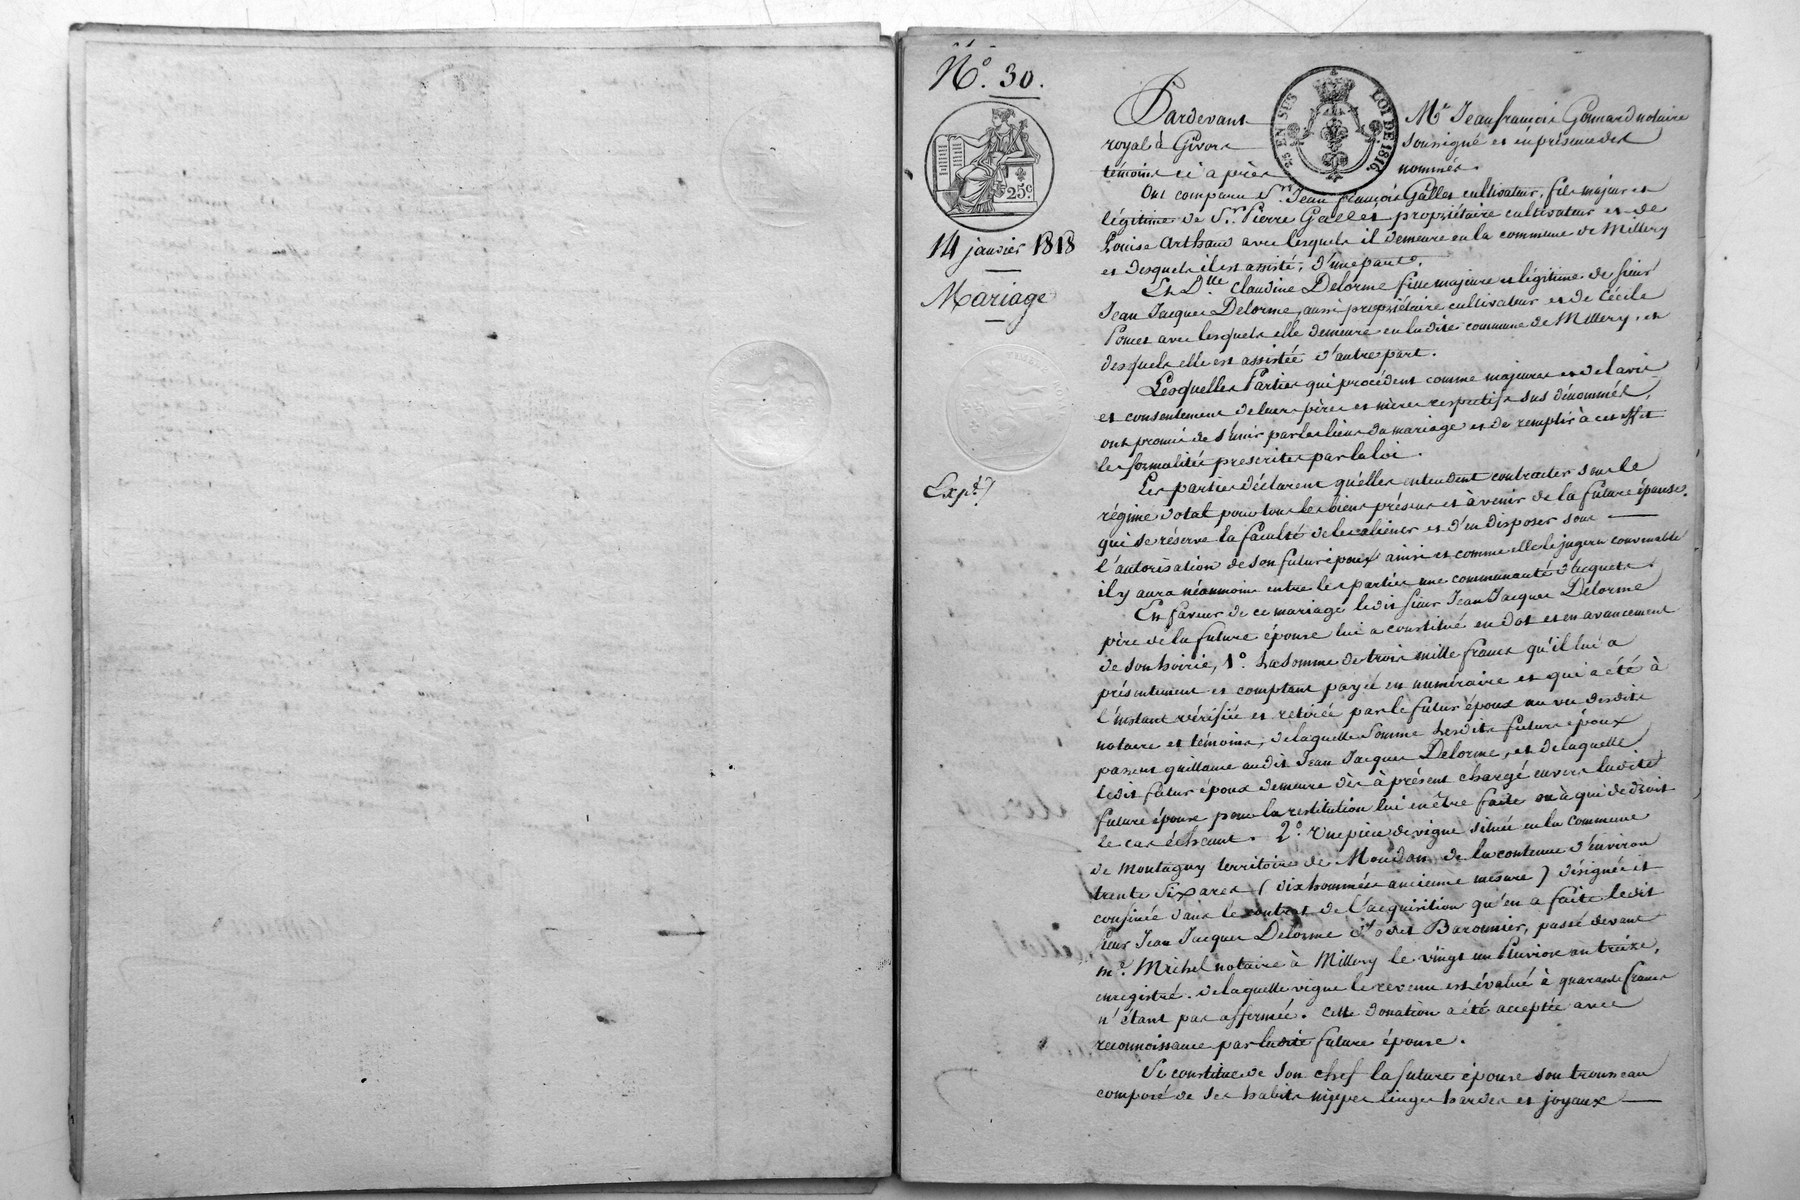 N.° 30.
25 EN SUS LOI DE 1816.
25.c
14 janvier 1818
Mariage
Exp.é
Pardevant Me. Jean françois Gonnard notaire
royal à Givors soussigné et en présence des
témoins ci après nommés.
Ont comparu Sr. Jean françois Galles cultivateur, fils majeur et
légitime de Sr. Pierre Galles propriétaire cultivateur et de
Louise Arthaud avec lesquels il demeure en la commune de Millery
et desquels il est assisté, d'une part.
Et Dlle. Claudine Delorme fille majeure et légitime de sieur
Jean Jacques Delorme, aussi propriétaire cultivateur et de Cécile
Poncet avec lesquels elle demeure en ladite commune de Millery, et
desquels elle est assistée d'autre part.
Lesquelles Parties qui procédent comme majeures et de l'avis
et consentement de leurs pères et mères respectifs sus dénommés,
ont promis de s'unir par les liens du mariage et de remplir à cet effet
les formalités prescrites par la loi.
Les parties déclarent qu'elles entendent contracter sous le
régime dotal pour tous les biens présens et à venir de la future épouse.
qui se réserve la faculté de les aliéner et d'en disposer sous
l'autorisation de son futur époux ainsi et comme elle le jugera convenable
il y aura néanmoins entre les parties une communauté d'acquets.
En faveur de ce mariage ledit sieur Jean Jacques Delorme
père de la future épouse lui a constitué en dot et en avancement
de son hoirie, 1°. La somme de trois mille francs qu'il lui a
présentement et comptant payée en numéraire et qui a été à
l'instant vérifiée et retirée par le futur époux au vu desdits
notaire et témoins, de laquelle somme lesdits futurs époux
passent quittance audit Jean Jacques Delorme, et de laquelle
ledit futur époux demeure dès à présent chargé envers ladite
future épouse pour la restitution lui en être faite ou à qui de droit
le cas échéant. 2°. Une pièce de vigne située en la commune
de Montagny territoire de Moudon de la contenue d'environ
trente six ares (dix hommées ancienne mesure) désignée et
confinée dans le contrat de l'acquisition qu'en a faite ledit
sieur Jean Jacques Delorme d' Baronnier, passé devant
me. Michel notaire à Millery le vingt un Pluviose an treize,
enregistré. de laquelle vigne le revenu est évalué à quarante francs
n'étant pas affermée. Cette donation a été acceptée avec
reconnoissance par ladite future épouse.
Se constitue de son chef la future épouse son trousseau
composé de ses habits nippes linges hardes et joyaux